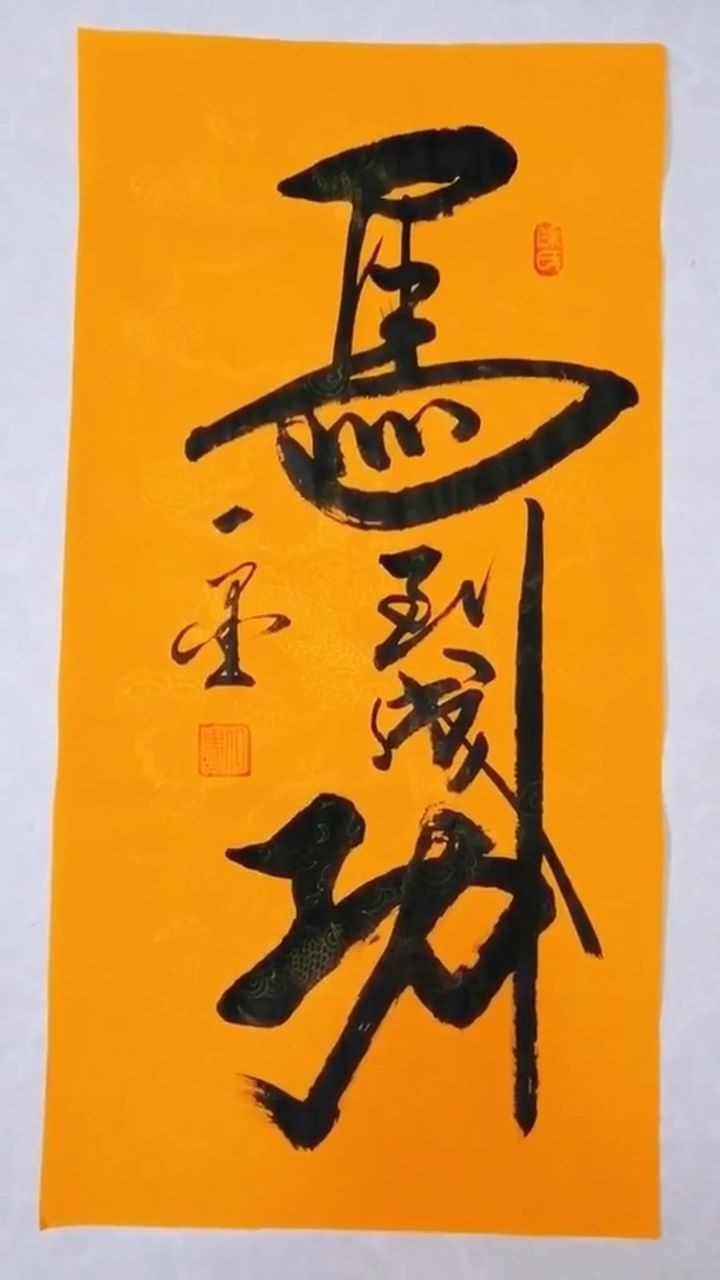 馬到成功
一墨